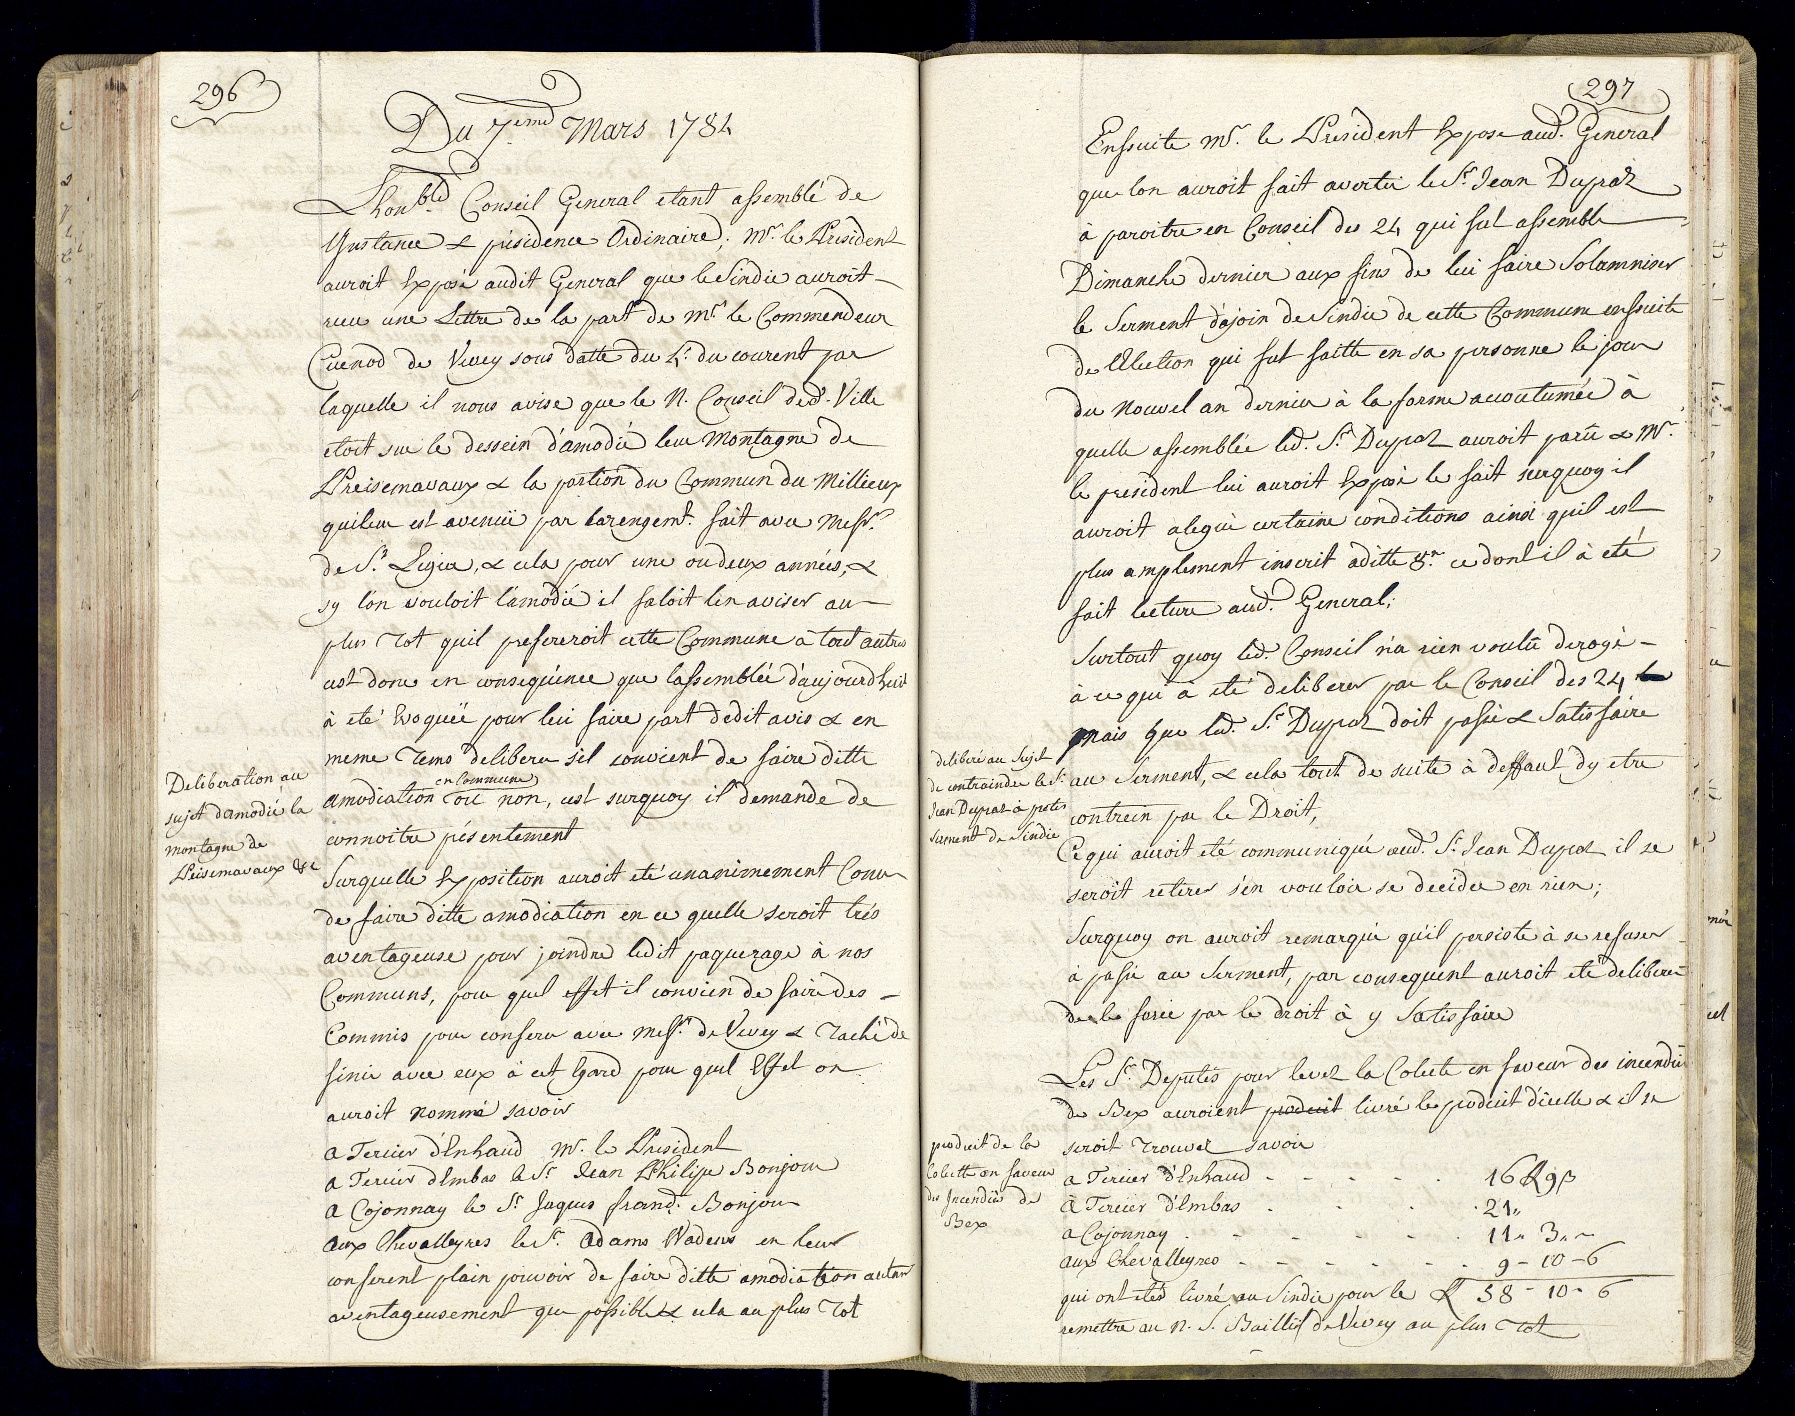 296
Du 7.eme Mars 1784
Lhon.ble Conseil General etant assemblé de
Ynstance & présidence Ordinaire; Mr. le President
auroit Exposé audit General que le Sindic auroit
receu une Lettre de la part de Mr. le Commendeur
Cuenod de Vivey sous datte du 4.e du courent par
laquelle il nous avise que le N. Conseil de d. Ville
etoit sur le dessein d'amodié leur Montagne de
Preisemavaux & la portion du Commun du Millieux
qui leur est avenuë par larengemt. fait avec Messrs.
de St. Legier, & cela pour une ou deux années, &
sy l'on vouloit l'amodié il faloit l'en aviser au
plus Tot quil prefereroit cette Commune à tout autres
cest donc en consequence que lassemblée d'aujourdhuit
à eté Evoquée pour lui faire part dedit avis & en
meme Tems deliberer s'il convient de faire ditte
en Commune
amodiation ou non, cest surquoy il demande de
connoitre présentement
Deliberation au
sujet damodié la
montagne de
Preisemavaux &c
Surquelle Exposition auroit eté unanimement Connu
de faire ditte amodiation en ce quelle seroit trés
aventageuse pour joindre ledit paquerage à nos
Communs, pour quel effet il convien de faire des
Commis pour conferer avec Messrs. de Vivey & Taché de
finir avec eux à cet Egard pour quel Effet on
auroit nommé savoir
a Tercier d'Enhaud Mr. le President
a Tercier d'Embas le Sr. Jean Philipe Bonjour
a Cojonnay le Sr. Jaques frand. Bonjour
aux Chevalleyres le Sr. Adams Wadens en leur
conferent plain pouvoir de faire ditte amodiation autan
aventageusement que possible & cela au plus Tot
297
Ensuite Mr. le President Expose aud. General
que lon auroit fait avertir le Sr. Jean Dupraz
à paroitre en Conseil des 24 qui fut assemblé
Dimanche dernier aux fins de lui faire Solamniser
le Serment d'ajoin de Sindic de cette Commune ensuite
de l'Election qui fut faitte en sa personne le jour
du Nouvel an dernier à la forme accoutumée à
quelle assemblée led. Sr. Dupraz auroit parü & Mr.
le president lui auroit Exposé le fait surquoy il
auroit alegué certaine conditions ainsi quil est
plus amplement inscrit aditte ce dont il à eté
fait lecture aud. General;
Surtout quoy led. Conseil n'a rien voulû derogé
à ce qui à eté deliberer par le Conseil des 24
mais que led. Sr. Dupraz doit passé & Satisfaire
au Serment, & cela tout de suite à deffaut dy etre
contrein par le Droit,
delibéré au Sujet
de contraindre le Sr.
Jean Dupraz à preter
serment de Sindic
Ce qui auroit eté communiqué aud. Sr. Jean Dupraz il se
seroit retirer s'en vouloir se decider en rien;
Surquoy on auroit remarqué qu'il persiste à se refuser
à passé au Serment, par consequent auroit eté deliberé
de le forcé par le droit à y Satisfaire
Les Srs. Deputés pour levez la Colecte en faveur des incendié
de Bex auroient produit livré le produit d'icelle & il se
seroit Trouvez savoir
produit de la
Colette en faveur
des Incendiés de
Bex
a Tercier d'Enhaud 16 9
à Tercier d'Embas 21
a Cojonnay 11 " 3 "
aux Chevalleyres 9 - 10 - 6
qui ont etés livré au Sindic pour le 58 - 10 - 6
remettre au N. S. Baillif de Vivey au plus Tot